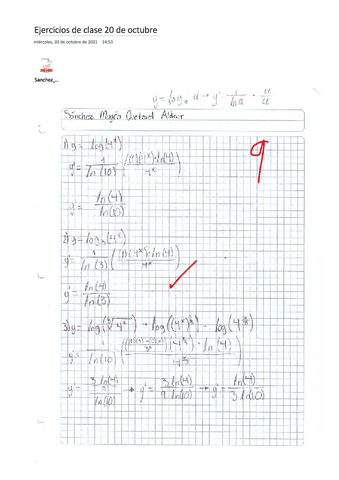 Ejercicios de clase 20 de octubre
miércoles, 20 de octubre de 2021 14:53
Sanchez_...
y = log_a u → y' = 1/ln a · u'/u
Sánchez Magén Quetzael Aldair
9
1) y = log(4^x)
y' = 1/ln(10) ((1)(4^x)·ln(4)/4^x)
y' = ln(4)/ln(10)
2) y = log_3(4^x)
y' = 1/ln(3) ((1)(4^x)·ln(4)/4^x)
y' = ln(4)/ln(3)
3) y = log(∛4^x) → log((4^x)^1/3) = log(4^x/3)
y' = 1/ln(10) (((1)(3)-(0)(x)/3²)(4^x/3)·ln(4)/4^x/3)
y' = 3 ln(4)/9/ln(10) → y' = 3 ln(4)/9 ln(10) → y' = ln(4)/3 ln(10)